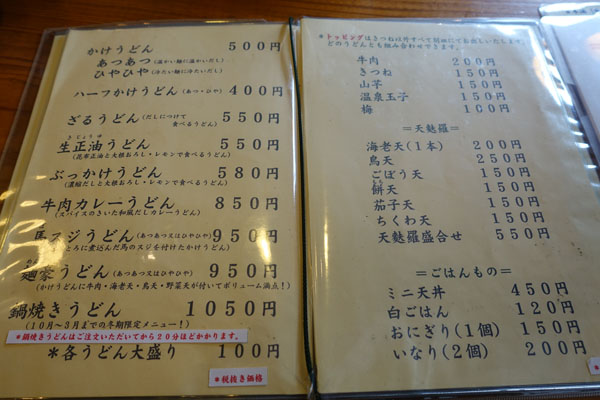 かけうどん 500円
あつあつ(温かい麺に温かいだし)
ひやひや(冷たい麺に冷たいだし)
ハーフかけうどん(あつ・ひや) 400円
ざるうどん(だしにつけて食べるうどん) 550円
生正油うどん 550円
きじょうゆ
(昆布正油と大根おろし・レモンで食べるうどん)
ぶっかけうどん 580円
(濃縮だしと大根おろし・レモンで食べるうどん)
牛肉カレーうどん 850円
(スパイスのきいた和風だしカレーうどん)
馬スジうどん(あつあつ又はひやひや) 950円
(とろに煮込んだ馬のスジを付けたかけうどん)
麺豪うどん(あつあつ又はひやひや) 950円
(かけうどんに牛肉・海老天・鳥天・野菜天が付いてボリューム満点!)
鍋焼きうどん 1050円
(10月~3月までの冬期限定メニュー!)
*鍋焼きうどんはご注文いただいてから20分ほどかかります。
*各うどん大盛り 100円
*税抜き価格
*トッピングはきつね以外すべて別皿にてお出しいたします。
どのうどんとも組み合わせできます。
牛肉 200円
きつね 150円
山芋 150円
温泉玉子 150円
梅 100円
=天麩羅=
海老天(1本) 200円
鳥天 250円
ごぼう天 150円
餅天 150円
茄子天 150円
ちくわ天 150円
天麩羅盛合せ 550円
=ごはんもの=
ミニ天丼 450円
白ごはん 120円
おにぎり(1個) 150円
いなり(2個) 200円
*税抜き価